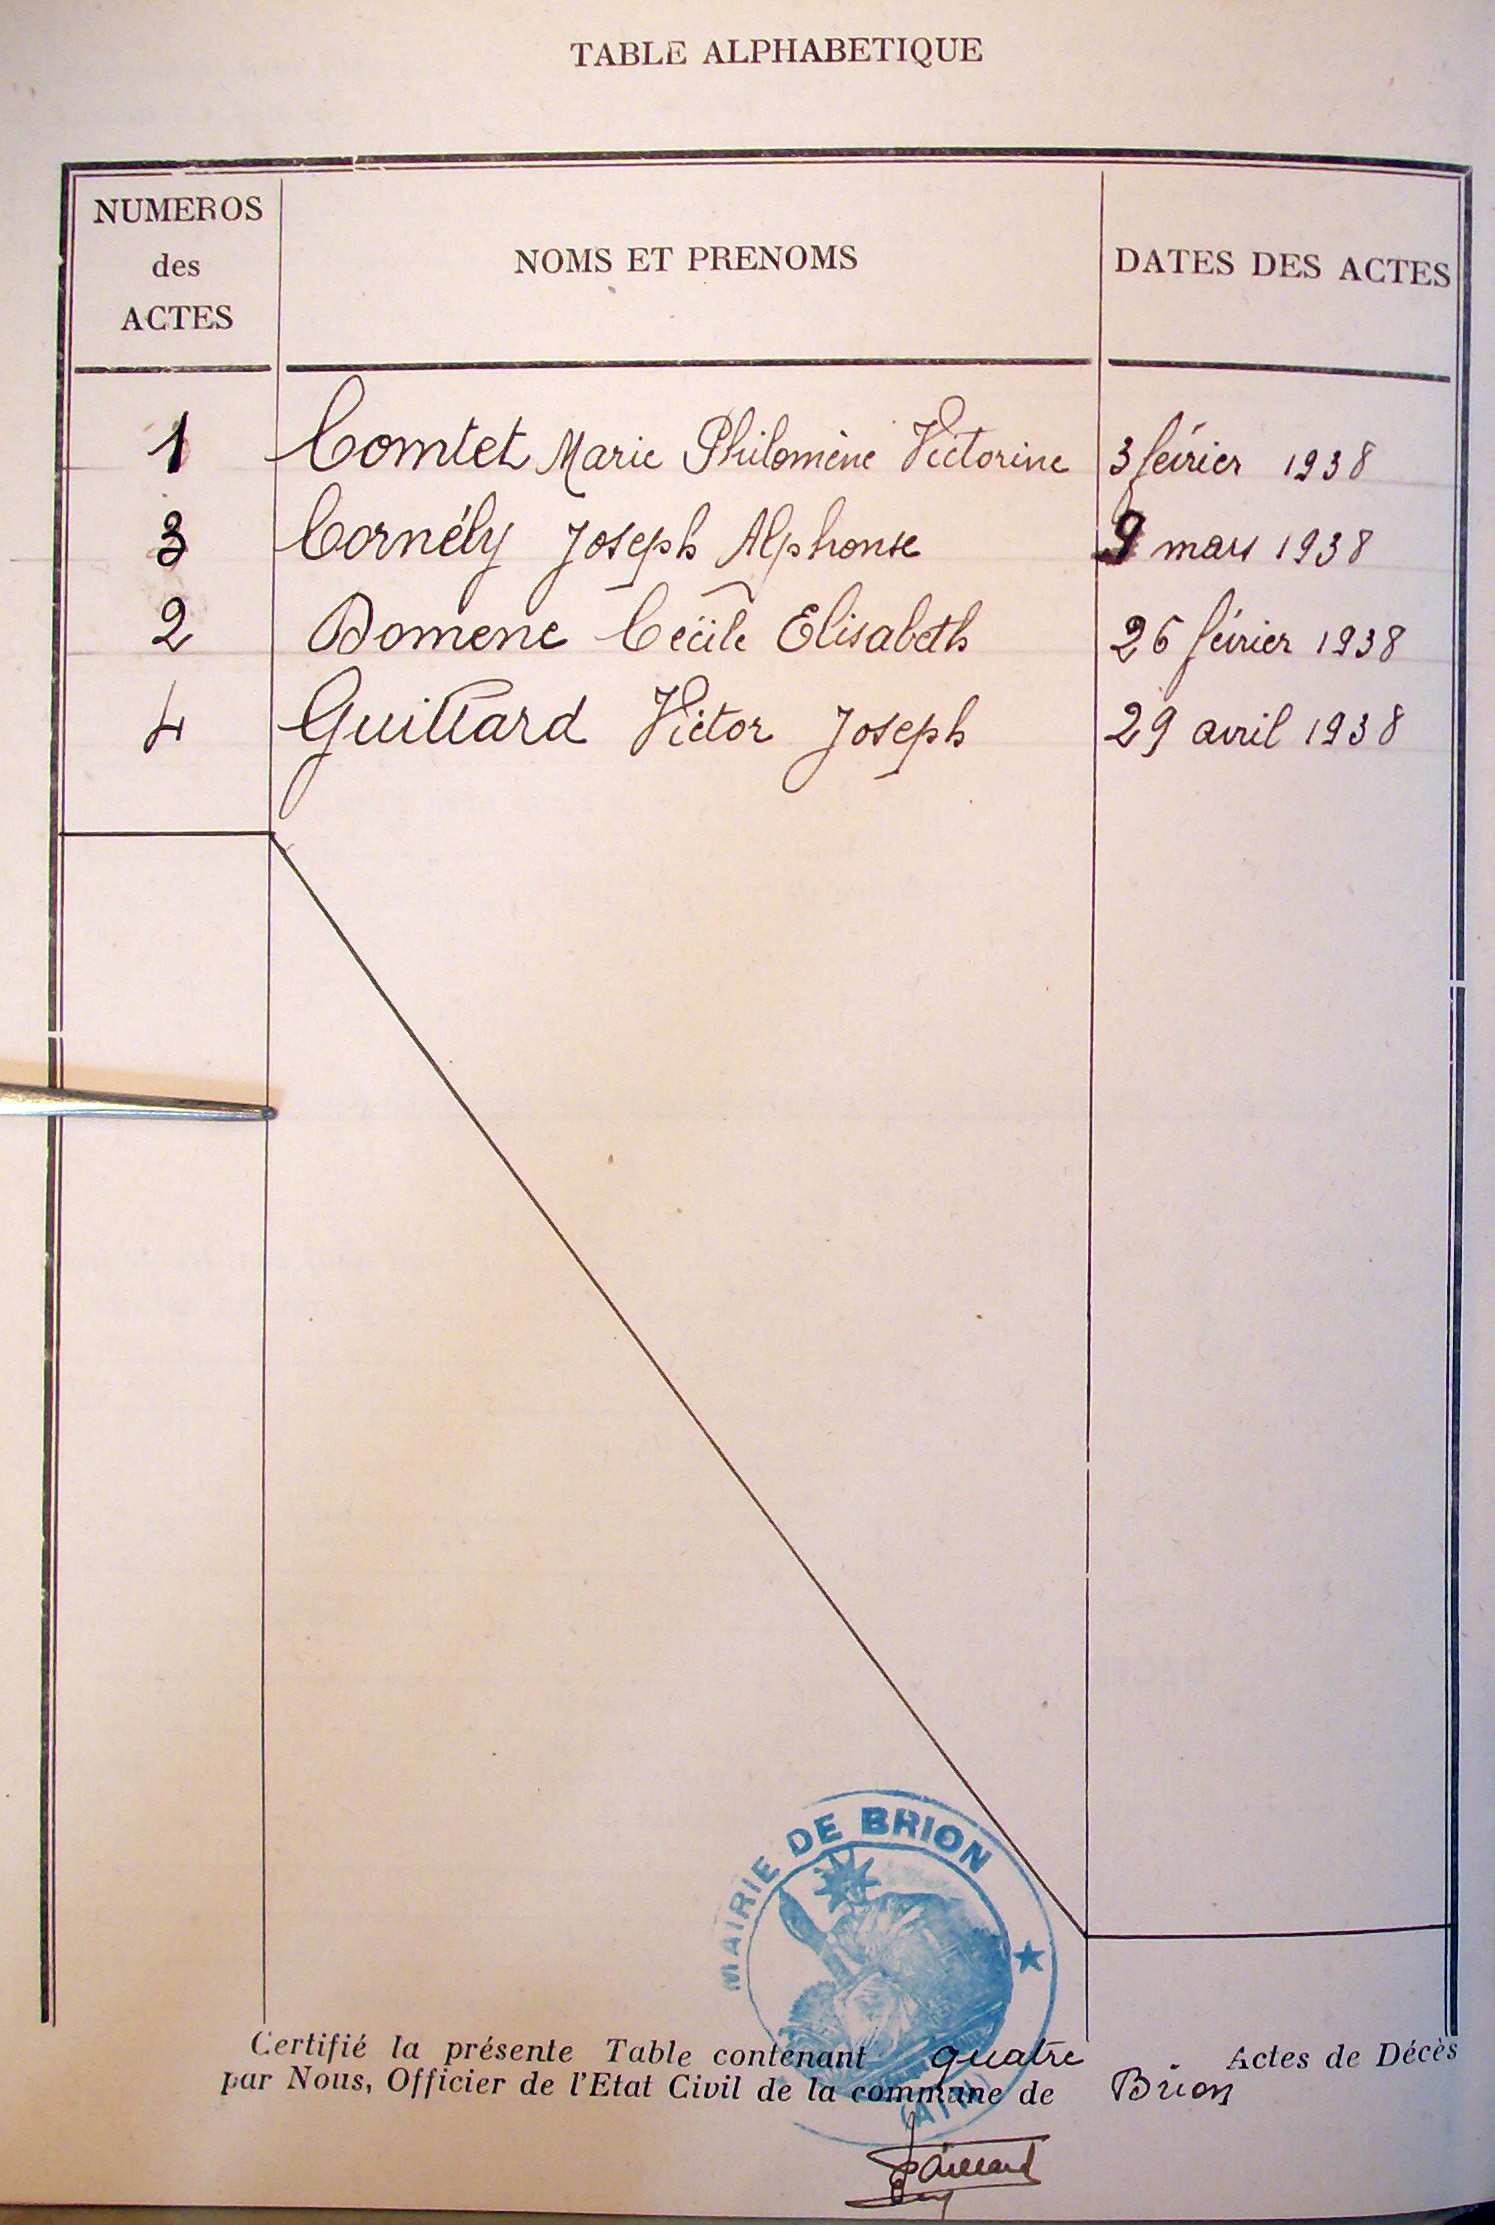 TABLE ALPHABETIQUE
NUMEROS
des
ACTES
NOMS ET PRENOMS
DATES DES ACTES
1 Comtet Marie Philomène Victorine 3 février 1938
3 Cornély Joseph Alphonse 9 mars 1938
2 Domene Cécile Elisabeth 26 février 1938
4 Guillard Victor Joseph 29 avril 1938
MAIRIE DE BRION
Certifié la présente Table contenant quatre Actes de Décès
par Nous, Officier de l'Etat Civil de la commune de Brion
(AIN)